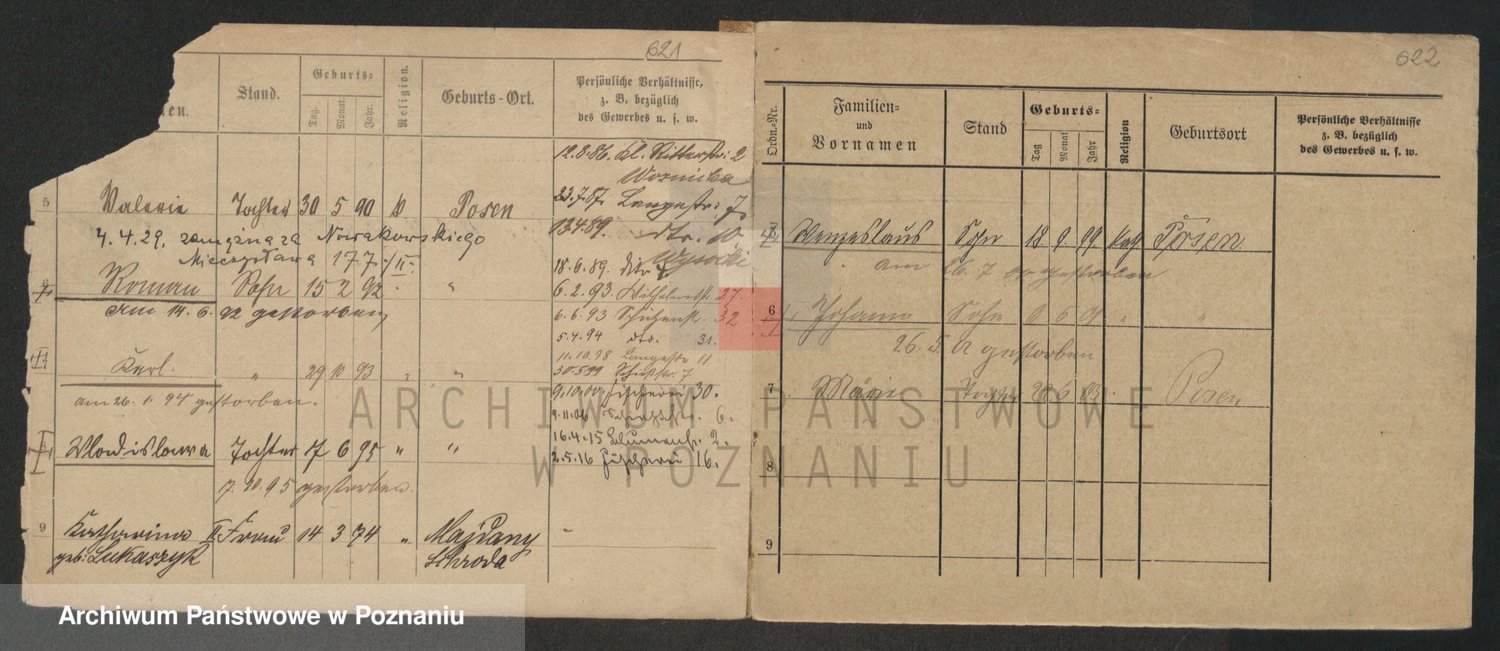 621
en.
Stand.
Geburts-
Tag.
Monat.
Jahr.
Religion.
Geburts-Ort.
Persönliche Verhältnisse,
z. B. bezüglich
des Gewerbes u. s. w.
12.8.86. Kl. Ritterstr. 2
Woznicka
5 Valerie Tochter 30 5 90 k Posen
23.7.87. Langestr. 7
4.4.29. zamężna za Nowakowskiego
13.4.89. dto. 10
Mieczysława 17.7./II.
Wysocki
18.6.89. dito
Roman Sohn 15 2 92 "
6.2.93. Wilhelmstr. 27.
Am 14.6.92 gestorben
6.6.93 Schützenstr. 32
5.4.94 dto. 31.
11.10.98 Langestr 11
Karl. " 29 10 93 " "
30.5.99 Schießstr. 7
am 26.1.94 gestorben.
9.10.00 Fischerei 30.
9.11.06 Schützstr. 6.
16.4.15 Blumenstr. 2.
Wladislawa Tochter 17 6 95 " "
2.5.16 Fischerei 16.
7.10.95 gestorben.
9 Katharina II Frau 14 3 74 " Majdany
geb. Lukaszyk Schroda
622
Ordn.-Nr.
Familien-
und
Vornamen
Stand
Geburts-
Tag
Monat
Jahr
Religion
Geburtsort
Persönliche Verhältnisse
z. B. bezüglich
des Gewerbes u. s. w.
Wenzeslaus Sohn 18 9 99 kath Posen
am 26.7 gestorben
6 Johann Sohn 6 "
26.5.02 gestorben
7 Marie Tochter 6 03 Posen
8
9
ARCHIWUM PAŃSTWOWE
W POZNANIU
Archiwum Państwowe w Poznaniu